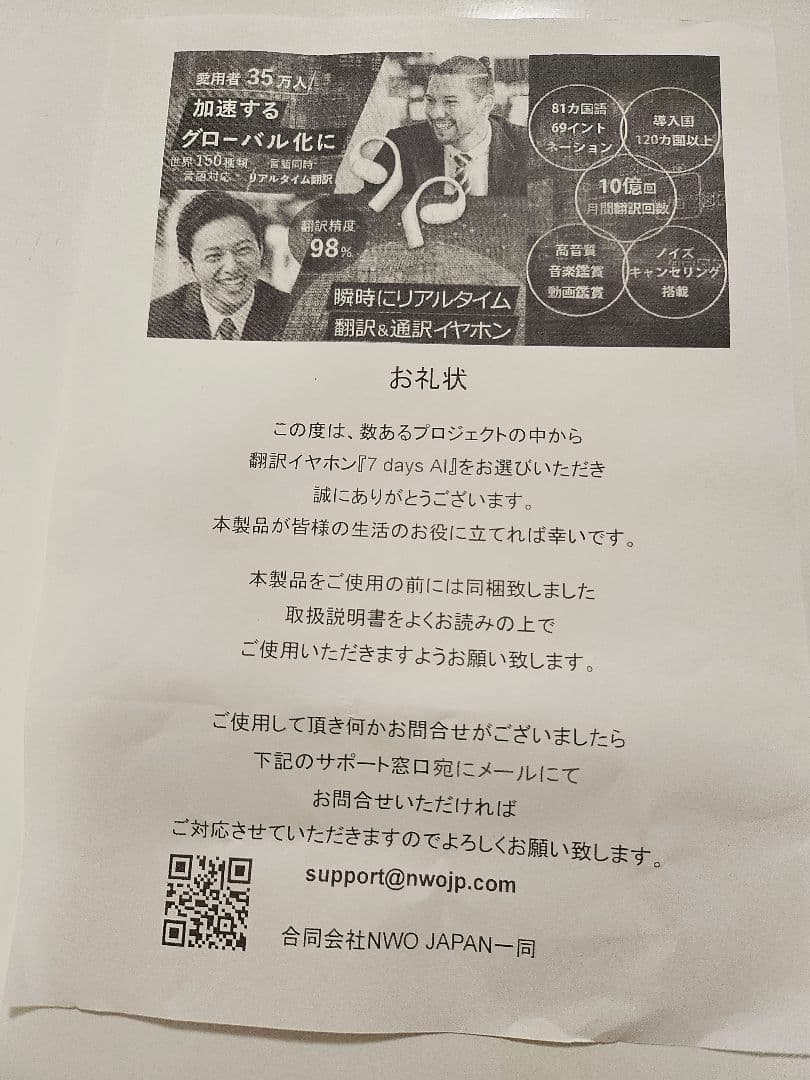 愛用者 35万人
加速する
グローバル化に
世界150種類 言語同時
言語対応・リアルタイム翻訳
翻訳精度
98%
瞬時にリアルタイム
翻訳&通訳イヤホン
81カ国語
69イント
ネーション
導入国
120カ国以上
10億回
月間翻訳回数
高音質
音楽鑑賞
動画鑑賞
ノイズ
キャンセリング
搭載
お礼状
この度は、数あるプロジェクトの中から
翻訳イヤホン『7 days AI』をお選びいただき
誠にありがとうございます。
本製品が皆様の生活のお役に立てれば幸いです。
本製品をご使用の前には同梱致しました
取扱説明書をよくお読みの上で
ご使用いただきますようお願い致します。
ご使用して頂き何かお問合せがございましたら
下記のサポート窓口宛にメールにて
お問合せいただければ
ご対応させていただきますのでよろしくお願い致します。
support@nwojp.com
合同会社NWO JAPAN一同